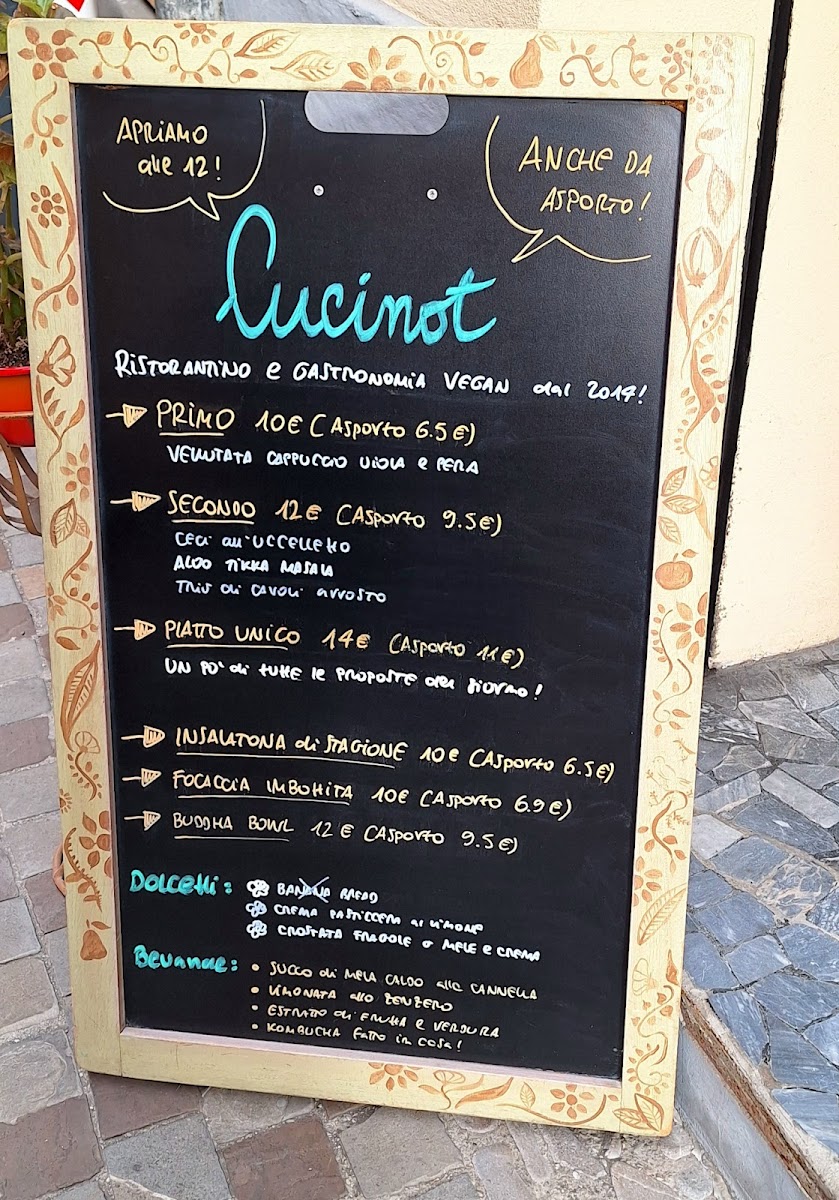 APRIAMO
alle 12!
ANCHE DA
ASPORTO!
Cucinot
RISTORANTINO e GASTRONOMIA VEGAN dal 2014!
PRIMO 10€ (ASporto 6.5€)
VELLUTATA CAPPUCCIO VIOLA e PERA
SECONDO 12€ (ASporto 9.5€)
CECI all'UCCELLETTO
ALOO TIKKA MASALA
TRIS di CAVOLI arrosto
PIATTO UNICO 14€ (ASporto 11€)
UN PO' di tutte le proposte del giorno!
INSALATONA di STAGIONE 10€ (ASporto 6.5€)
FOCACCIA IMBOTTITA 10€ (ASporto 6.9€)
BUDDHA BOWL 12€ (ASporto 9.5€)
Dolcetti:
BANANA BREAD
CREMA PASTICCERA al LIMONE
CROSTATA FRAGOLE o MELE e CREMA
Bevande:
• SUCCO di MELA CALDO alla CANNELLA
• LIMONATA allo ZENZERO
• ESTRATTO di FRUTTA e VERDURA
• KOMBUCHA fatto in casa!